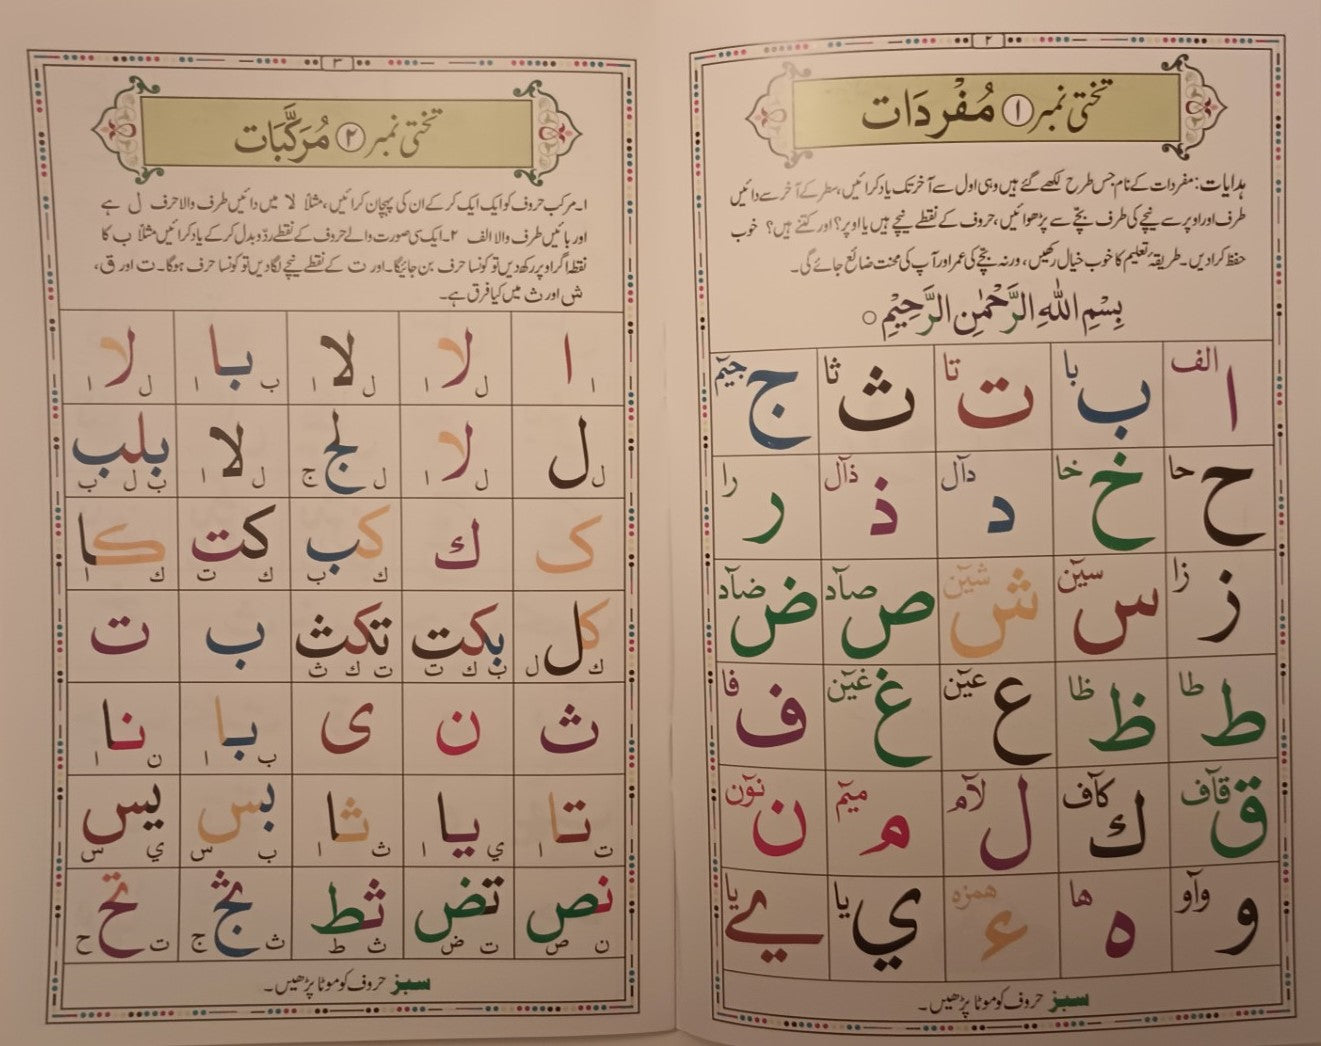 ۲
تختی نمبر ۱ مُفْرَدَات
ہدایات: مفردات کے نام جس طرح لکھے گئے ہیں وہی اول سے آخر تک یاد کرائیں، سطر کے آخر سے دائیں
طرف اور اوپر سے نیچے کی طرف بچّے سے پڑھوائیں، حروف کے نقطے نیچے ہیں یا اوپر؟ اور کتنے ہیں؟ خوب
حفظ کرا دیں۔ طریقۂ تعلیم کا خوب خیال رکھیں، ورنہ بچّے کی عمر اور آپ کی محنت ضائع جائے گی۔
بِسْمِ اللهِ الرَّحْمٰنِ الرَّحِيْمِ ○
الف ا با ب تا ت ثا ث جیٓم ج
حا ح خا خ دآل د ذآل ذ را ر
زا ز سیٓن س شیٓن ش صآد ص ضآد ض
طا ط ظا ظ عیٓن ع غیٓن غ فا ف
قآف ق کآف ك لآم ل میٓم م نوٓن ن
وآو و ها ه همزه ء یا ي یا ے
سبز حروف کو موٹا پڑھیں۔
۳
تختی نمبر ۲ مُرَكَّبَات
۱۔ مرکب حروف کو ایک ایک کر کے ان کی پہچان کرائیں، مثلاً لا میں دائیں طرف والا حرف ل ہے
اور بائیں طرف والا الف ۲۔ ایک سی صورت والے حروف کے نقطے ردّ و بدل کر کے یاد کرائیں مثلاً ب کا
نقطہ اگر اوپر رکھ دیں تو کونسا حرف بن جائیگا۔ اور ت کے نقطے نیچے لگا دیں تو کونسا حرف ہوگا۔ ت اور ق،
ش اور ث میں کیا فرق ہے۔
ا لا لا با لا
ا ل ا ل ا ب ا ل ا
ل لا لج لا بلب
ل ل ا ل ج ل ا ب ل ب
ک ك كب كت كا
ك ب ك ت ك ا
كل بكت تكث ب ت
ك ل ب ك ت ت ك ث
ث ن ى با نا
ب ا ن ا
تا يا ثا بس يس
ت ا ي ا ث ا ب س ي س
نص تض ثط ثج تح
ن ص ت ض ث ط ث ج ت ح
سبز حروف کو موٹا پڑھیں۔